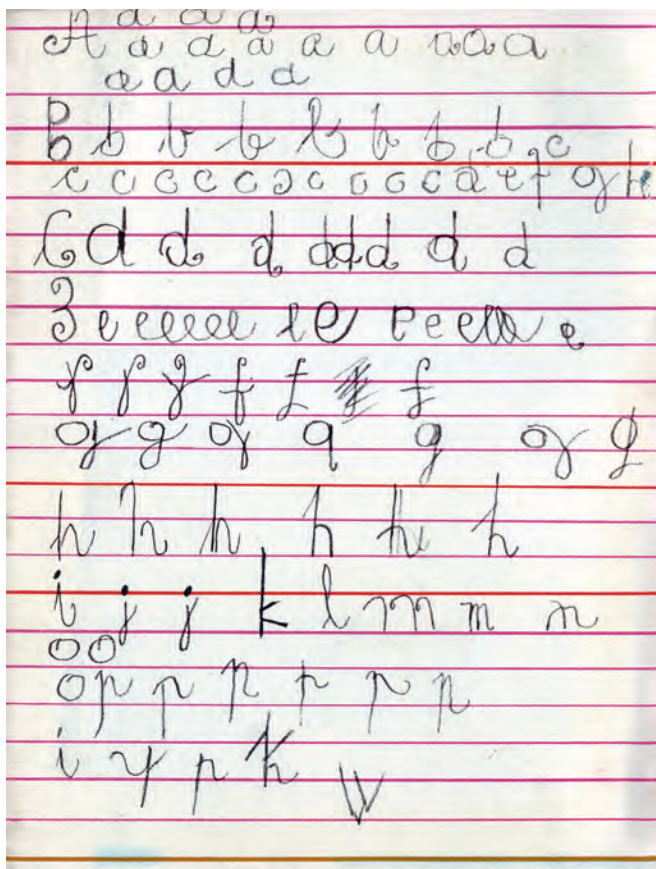 a a a
A a a a a a a a a
a a d d
B b b b b b b b c
c c c c c c c c c c d e f g h
C d d d d d d d d
3 e e e e e e e l e e e e l l e
f f f f f f
g g g q g g g
h h h h h h
i j j k l m m n
o o
o p p p p p p
i y p k w